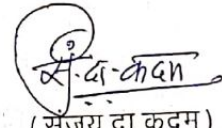 सं. दा. कदम
( संजय दा कदम )